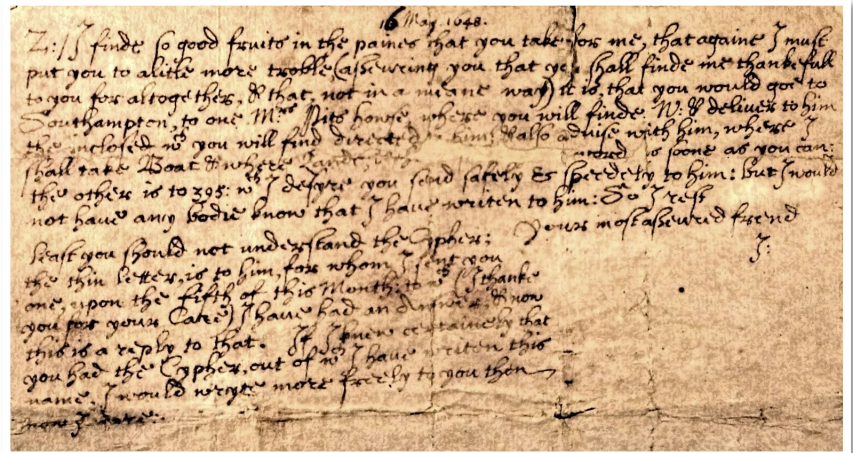 16 May. 1648.
Z:/ I finde so good fruits in the paines that you take for me, that againe I must
put you to a litle more troble (assewring you that ye shall finde me thankefull
to you for altogether, & that, not in a meane way) it is, that you would goe to
Southampton, to one Mrs Pits house, where you will finde. W: & deliver to him
the inclosed wch you will find directed to him; & also advise with him, where I
shall take Boat & where Lande: word as soone as you can:
the other is to 395: wch I desyre you send safely & speedely to him: but I would
not have any bodie know that I have written to him: So I rest
Your most assewred frend
J:
Least you should not understand the Cypher:
the thin letter, is to him, for whom I sent you
one, upon the fifth of this Month: to wch (I thanke
you for your Care) I have had an Answer: & now
this is a reply to that. If I knew certainely that
you had the Cypher, out of wch I have writen this
name, I would wryte more freely to you then
now I dare: